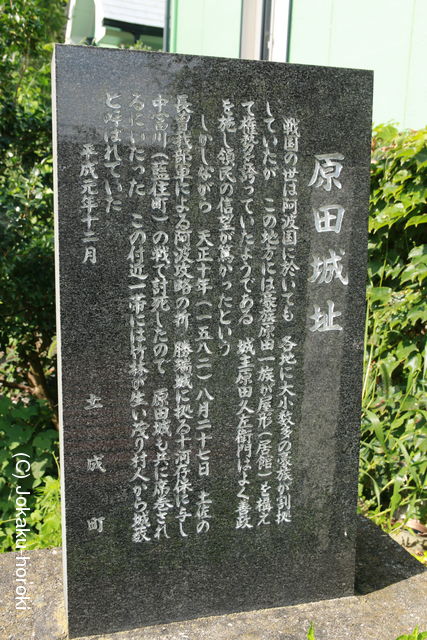 原田城址
戦国の世は阿波国に於いても 各地に大小数多の豪族が割拠
していたが この地方には豪族原田一族が屋形（居館）を構え
て権勢を誇っていたようである 城主原田久左衛門はよく善政
を施し領民の信望が篤かったという
しかしながら 天正十年（一五八二）八月二十七日 土佐の
長曽我部軍による阿波攻略の折 勝瑞城に拠る十河存保に与し
中富川（藍住町）の戦で討死したので 原田城も共に席巻され
るにいたった この付近一帯には竹林が生い茂り村人から城薮
と呼ばれていた
平成元年十二月
土成町
(C) Jokaku-horoki